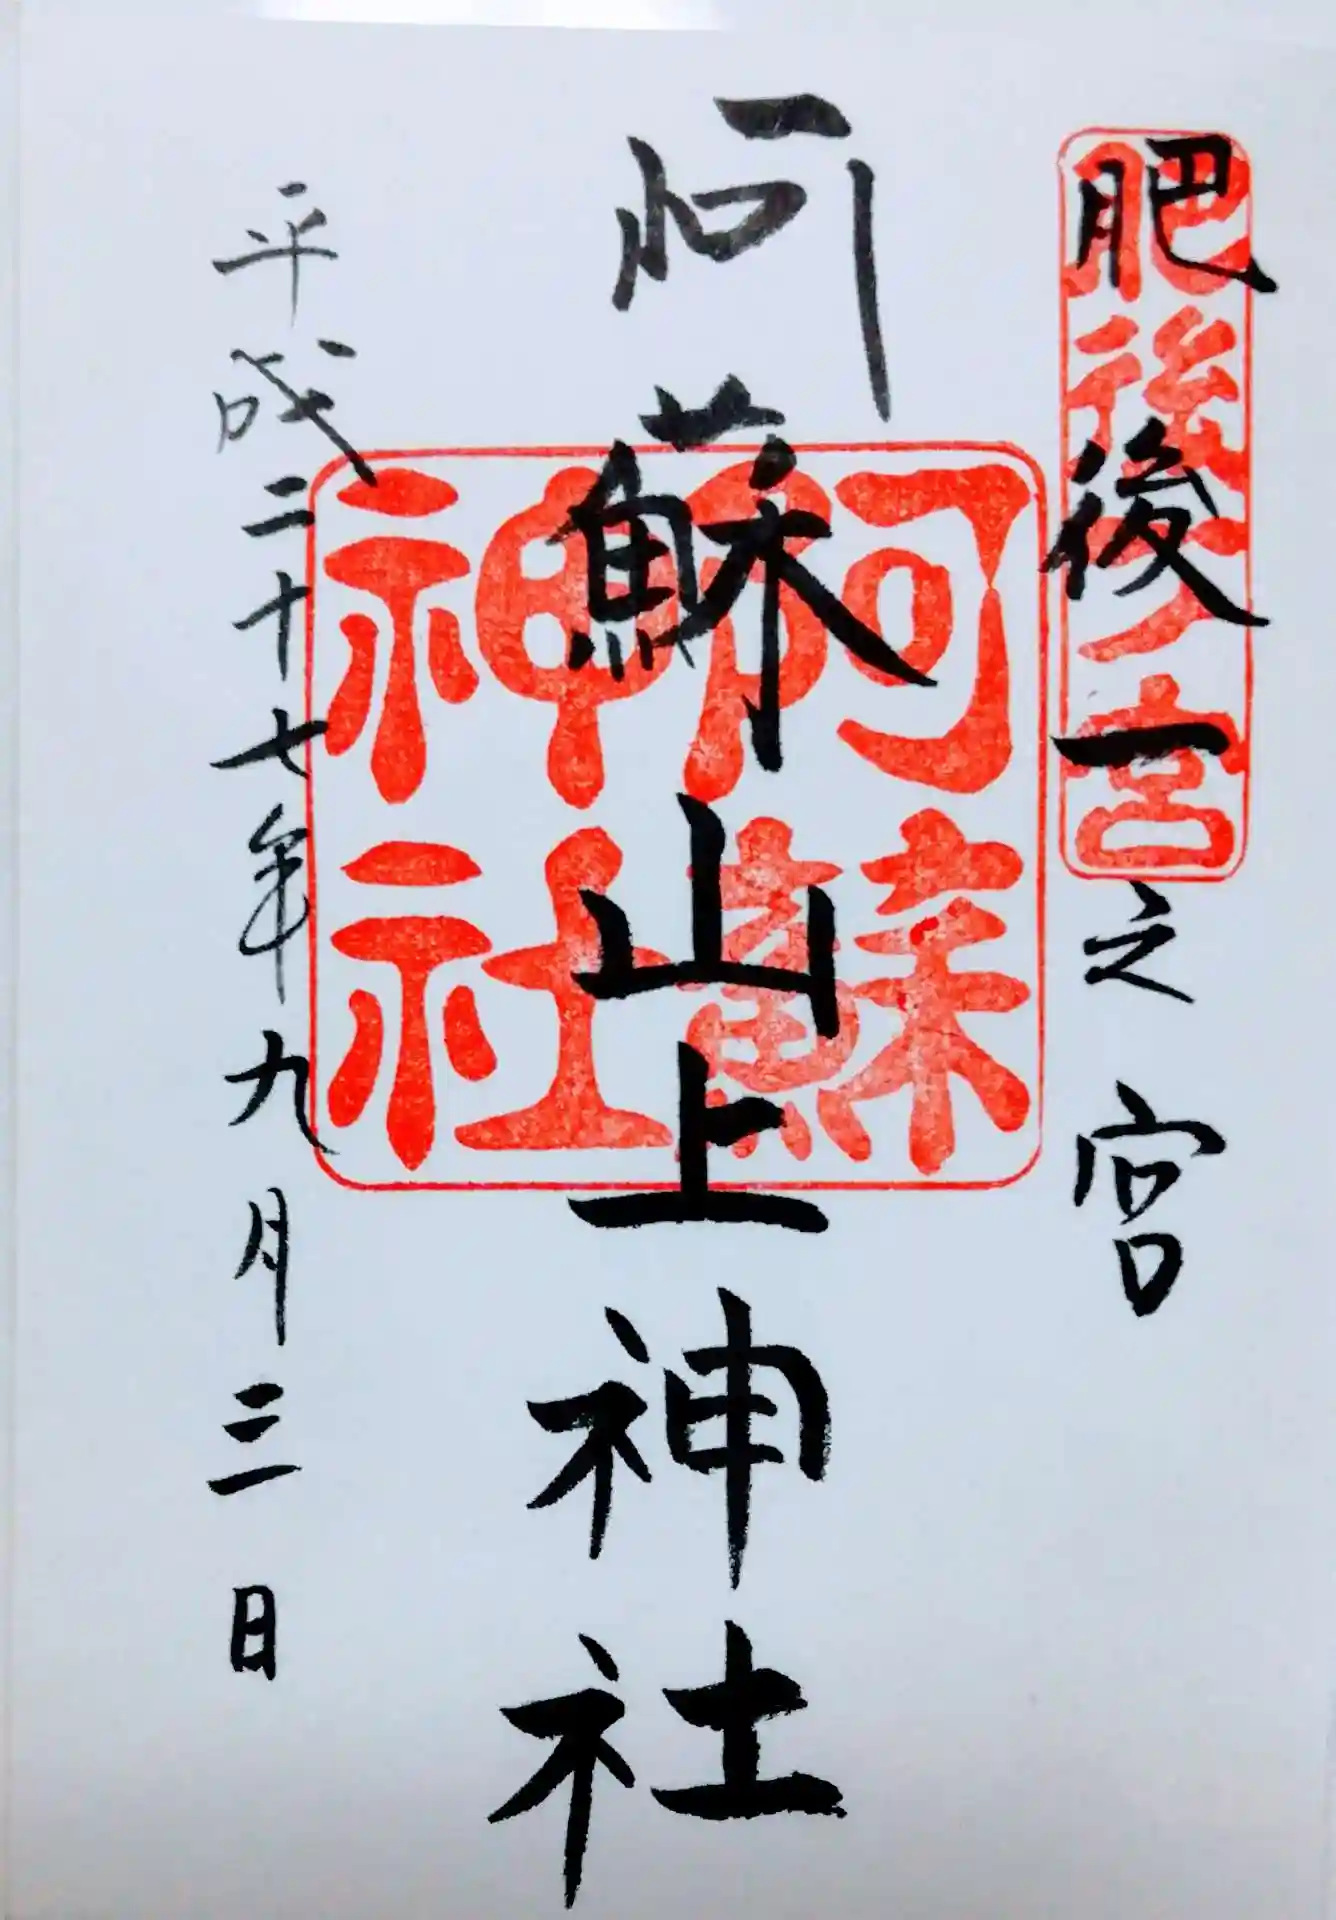 肥後一之宮
肥後一ノ宮
阿蘇山上神社
阿蘇
神社
平成二十七年九月三日